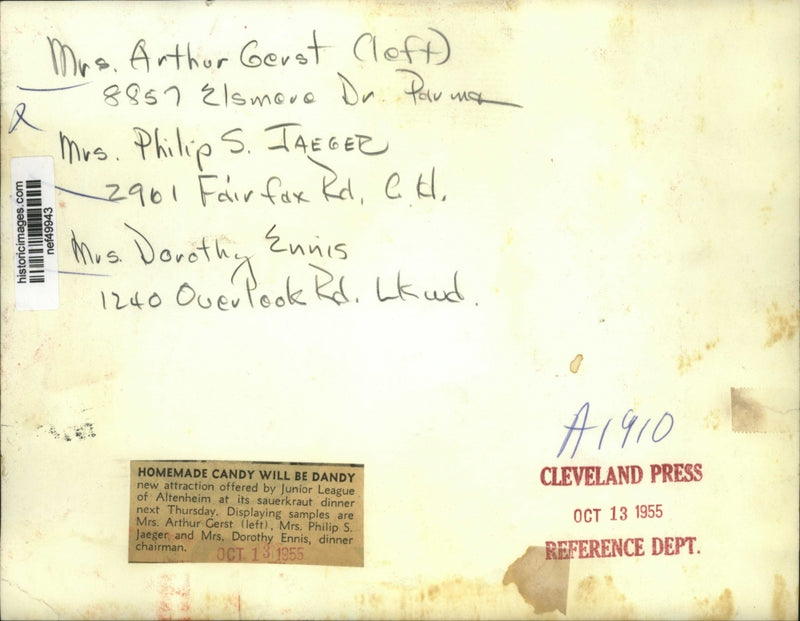 Mrs. Arthur Gerst (left)
8857 Elsmere Dr. Parma
Mrs. Philip S. JAEGER
2901 Fairfax Rd. C.H.
Mrs. Dorothy Ennis
1240 Overlook Rd. Lkwd.
historicimages.com
nef49943
A1910
CLEVELAND PRESS
OCT 13 1955
REFERENCE DEPT.
HOMEMADE CANDY WILL BE DANDY
new attraction offered by Junior League
of Altenheim at its sauerkraut dinner
next Thursday. Displaying samples are
Mrs. Arthur Gerst (left), Mrs. Philip S.
Jaeger and Mrs. Dorothy Ennis, dinner
chairman.
OCT 13 1955